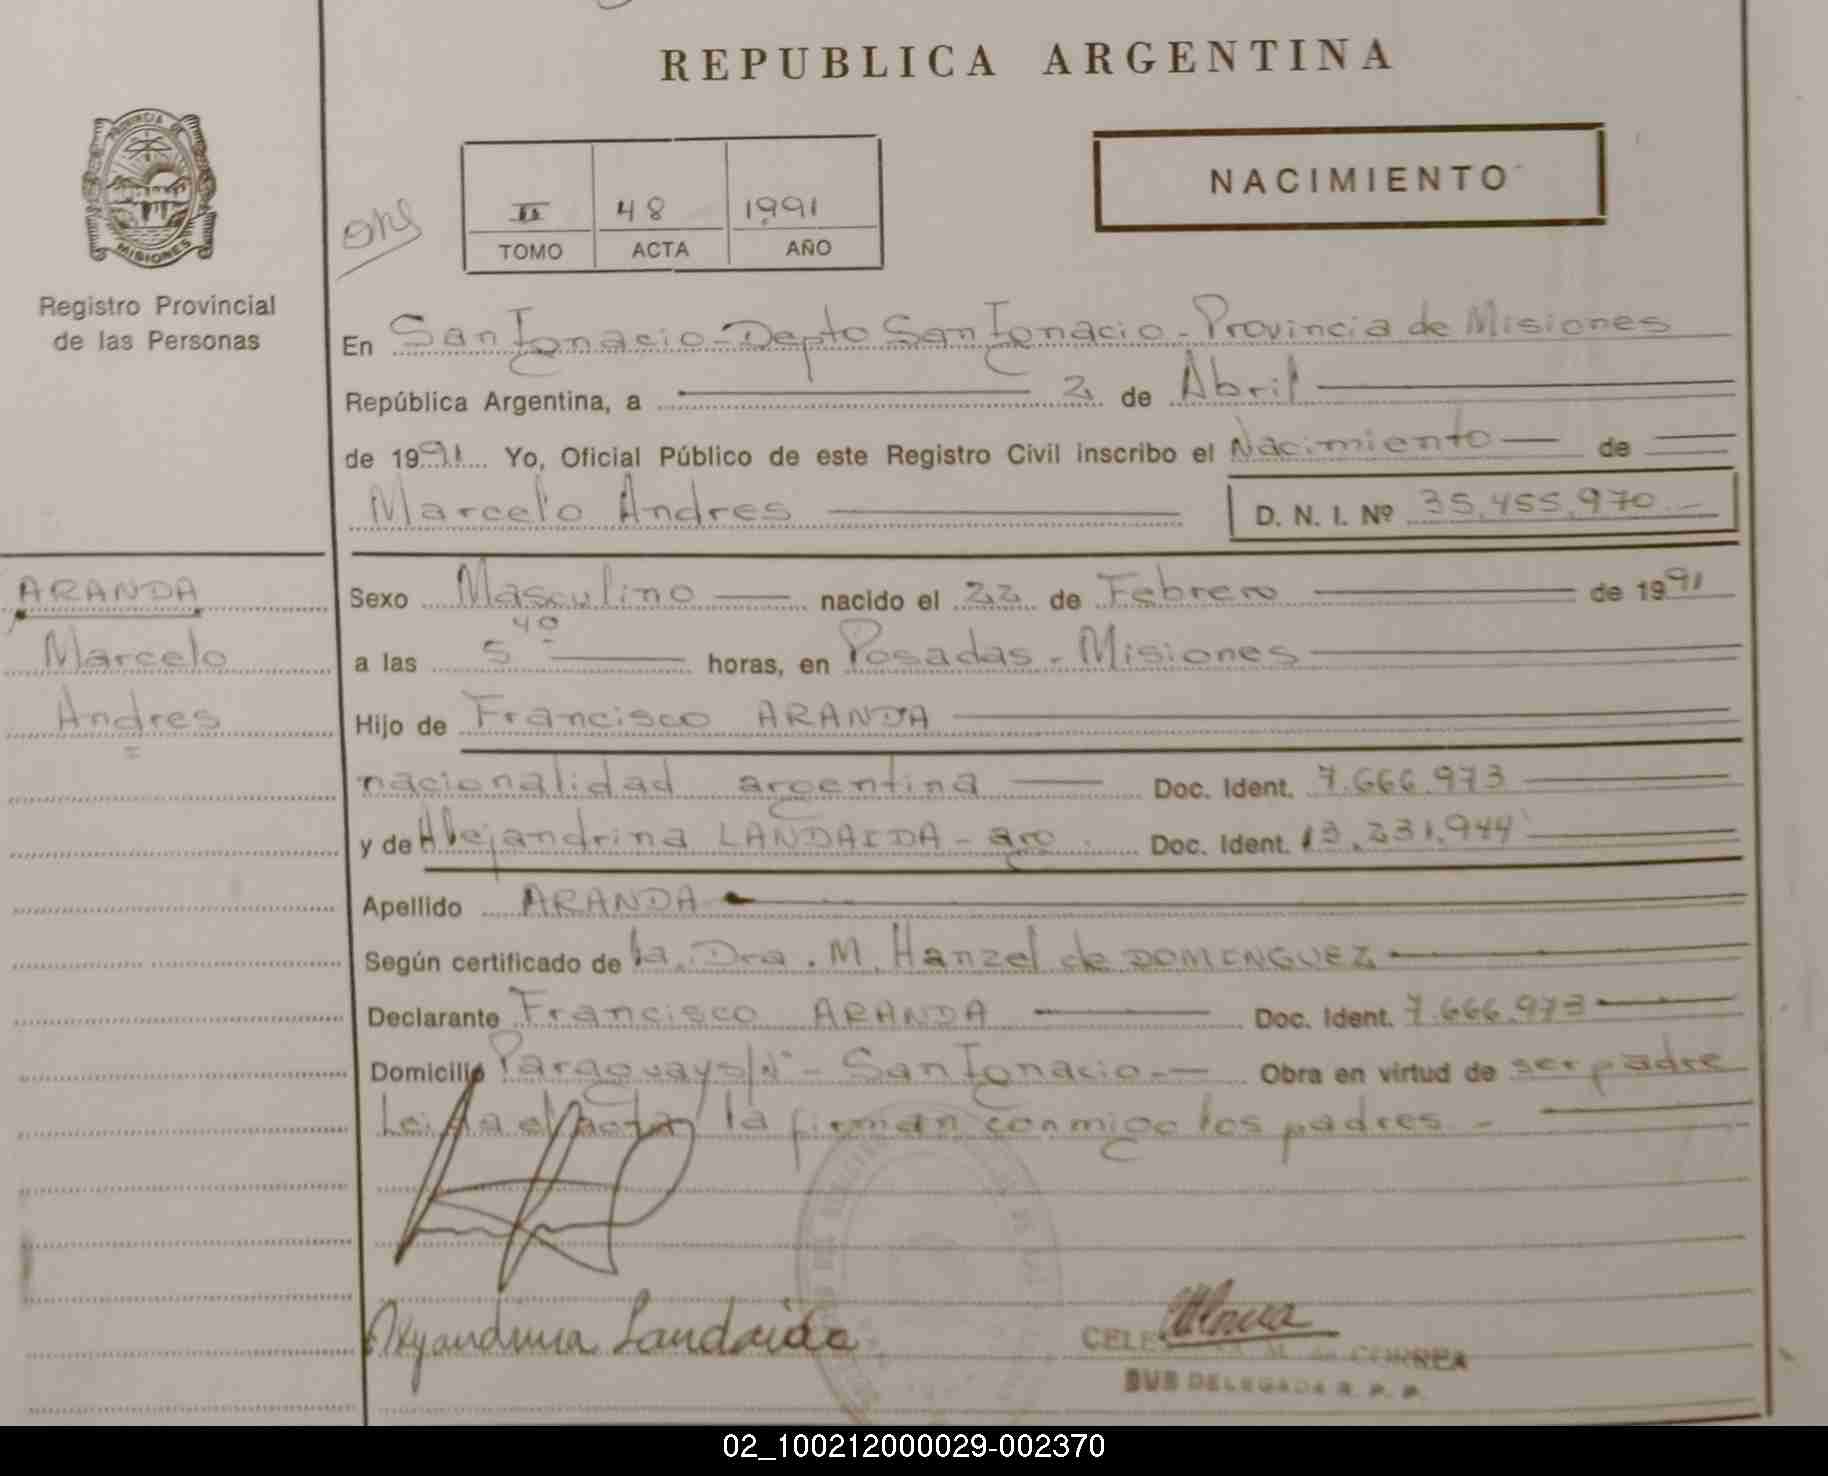 REPUBLICA ARGENTINA
PROVINCIA DE
MISIONES
NACIMIENTO
II 48 1991
TOMO ACTA AÑO
Registro Provincial
de las Personas
En San Ignacio - Depto San Ignacio - Provincia de Misiones
República Argentina, a 2 de Abril
de 1991. Yo, Oficial Público de este Registro Civil inscribo el Nacimiento de
Marcelo Andres D. N. I. Nº 35.455.970
ARANDA
Marcelo
Andres
Sexo Masculino nacido el 22 de Febrero de 1991
a las 5 40 horas, en Posadas - Misiones
Hijo de Francisco ARANDA
nacionalidad argentina Doc. Ident. 7.666.973
y de Alejandrina LANDAIDA - arg. Doc. Ident. 13.231.944
Apellido ARANDA
Según certificado de la. Dra. M. Hanzel de DOMINGUEZ
Declarante Francisco ARANDA Doc. Ident. 7.666.973
Domicilio Paraguay s/Nº - San Ignacio - Obra en virtud de ser padre
Leida el acta, la firman conmigo los padres -
Alejandrina Landaida
M. de CORREA
SUB DELEGADA R. P. P.
02_100212000029-002370